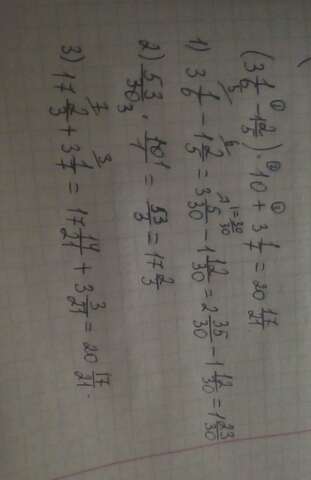 (3 1/6 - 1 2/5) · 10 + 3 1/7 = 20 17/21
1) 3 1/6 - 1 2/5 = 3 5/30 - 1 12/30 = 2 35/30 - 1 12/30 = 1 23/30
2) 53/30 · 10/1 = 53/3 = 17 2/3
3) 17 2/3 + 3 1/7 = 17 14/21 + 3 3/21 = 20 17/21.